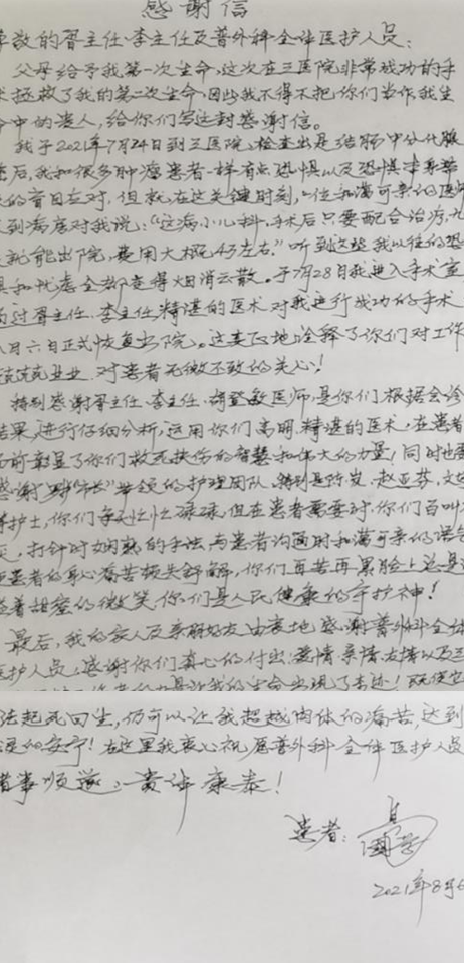 感谢信
敬的胥主任、李主任及普外科全体医护人员:
父母给予我第一次生命,这次在三医院非常成功的手
拯救了我的第二次生命,因此我不得不把你们当作我生
中的贵人,给你们写这封感谢信。
我于2021年7月24日到三医院,检查出是结肠中分化腺
后,我和很多肿瘤患者一样有点恐惧以及恐惧本身带
的盲目应对,但就在这关键时刻,一位和蔼可亲的医师
到病床对我说:“这病小儿科,手术后只要配合治疗,九
就能出院,费用大概4万左右。”听到这些我以往的恐
和忧虑全都变得烟消云散。于7月28日我进入手术室
过胥主任、李主任精湛的医术对我进行成功的手术
月六日正式恢复出院。这真正地诠释了你们对工作
兢兢业业,对患者无微不致的关心!
特别感谢胥主任、李主任、胡登敏医师,是你们根据会诊
结果,进行仔细分析,运用你们高明、精湛的医术,在患者
面前彰显了你们救死扶伤的智慧和伟大的力量!同时也要
感谢 带领的护理团队,特别是陈岚、赵亚芬、文
护士,你们每天忙忙碌碌,但在患者需要时,你们百叫
,打针时娴熟的手法,与患者沟通时和蔼可亲的语气
患者的身心痛苦顿失舒解,你们再苦再累脸上总是
着甜蜜的微笑,你们是人民健康的守护神!
最后,我的家人及亲朋好友由衷地感谢普外科全体
医护人员,感谢你们真心的付出,爱情、亲情、友情以及
让我的生命出现了奇迹!既使
法起死回生,仍可以让我超越肉体的痛苦,达到
的安宁!在这里我衷心祝愿普外科全体医护人员
诸事顺遂、贵体康泰!
患者:
2021年8月6